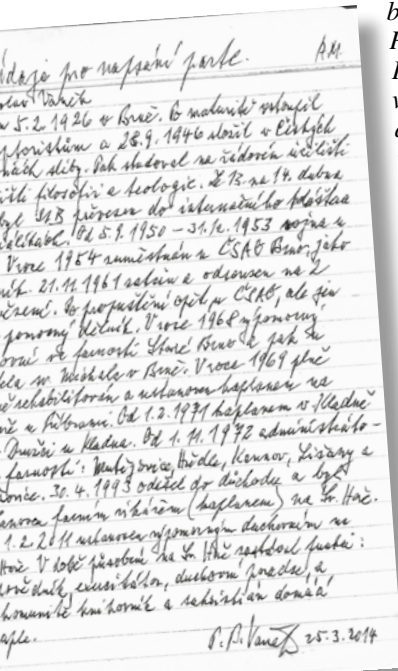 daje pro napsání parte. A.M.
slav Vaněk
5.2. 1926 v Brně. Po maturitě vstoupil
ptoristům a 28.9.1946 složil v Českých
sliby. Pak studoval na řádovém učilišti
filosofii a teologii. Ze 13. na 14. dubna
byl StB převezen do internačního kláštera
Od 5.9.1950 – 31.12.1953 vojna u
V roce 1954 zaměstnán u ČSAO Brno, jako
ník. 21.11.1961 zatčen a odsouzen na 2
vězení. Po propuštění opět u ČSAO, ale jen
pomocný dělník. V roce 1968 výpomocný
ve farnosti Staré Brno a pak u
sv. Michala v Brně. V roce 1969 plně
rehabilitován a ustanoven kaplanem na
u Příbrami. Od 1.2.1971 kaplanem v Kladně
u Kladna. Od 1.11.1972 administráto-
farností: Mutějovice, Hředle, Kounov, Lišany a
30.4.1993 odešel do důchodu a byl
farním vikářem (kaplanem) na Sv. Hoře.
1.2.2011 ustanoven výpomocným duchovním na
Hoře. V době působení na Sv. Hoře zastával funkci:
zpovědník, exercitátor, duchovní poradce, a
komunitě knihovník a sakristián domácí
kaple.
P. B. Vaněk 25.3.2014
b
v